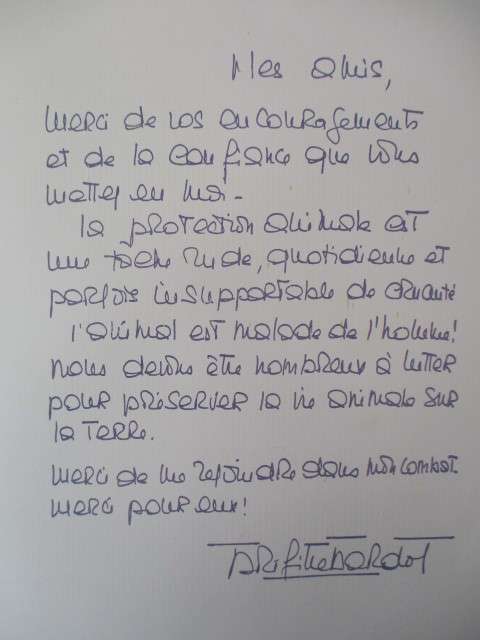 Mes amis,
Merci de vos encouragements
et de la confiance que vous
mettez en moi.
la protection animale est
une tache rude, quotidienne et
parfois insupportable de cruauté
l'animal est malade de l'homme!
nous devons être nombreux à lutter
pour préserver la vie animale sur
la Terre.
Merci de me rejoindre dans mon combat
Merci pour eux!
Brigitte Bardot